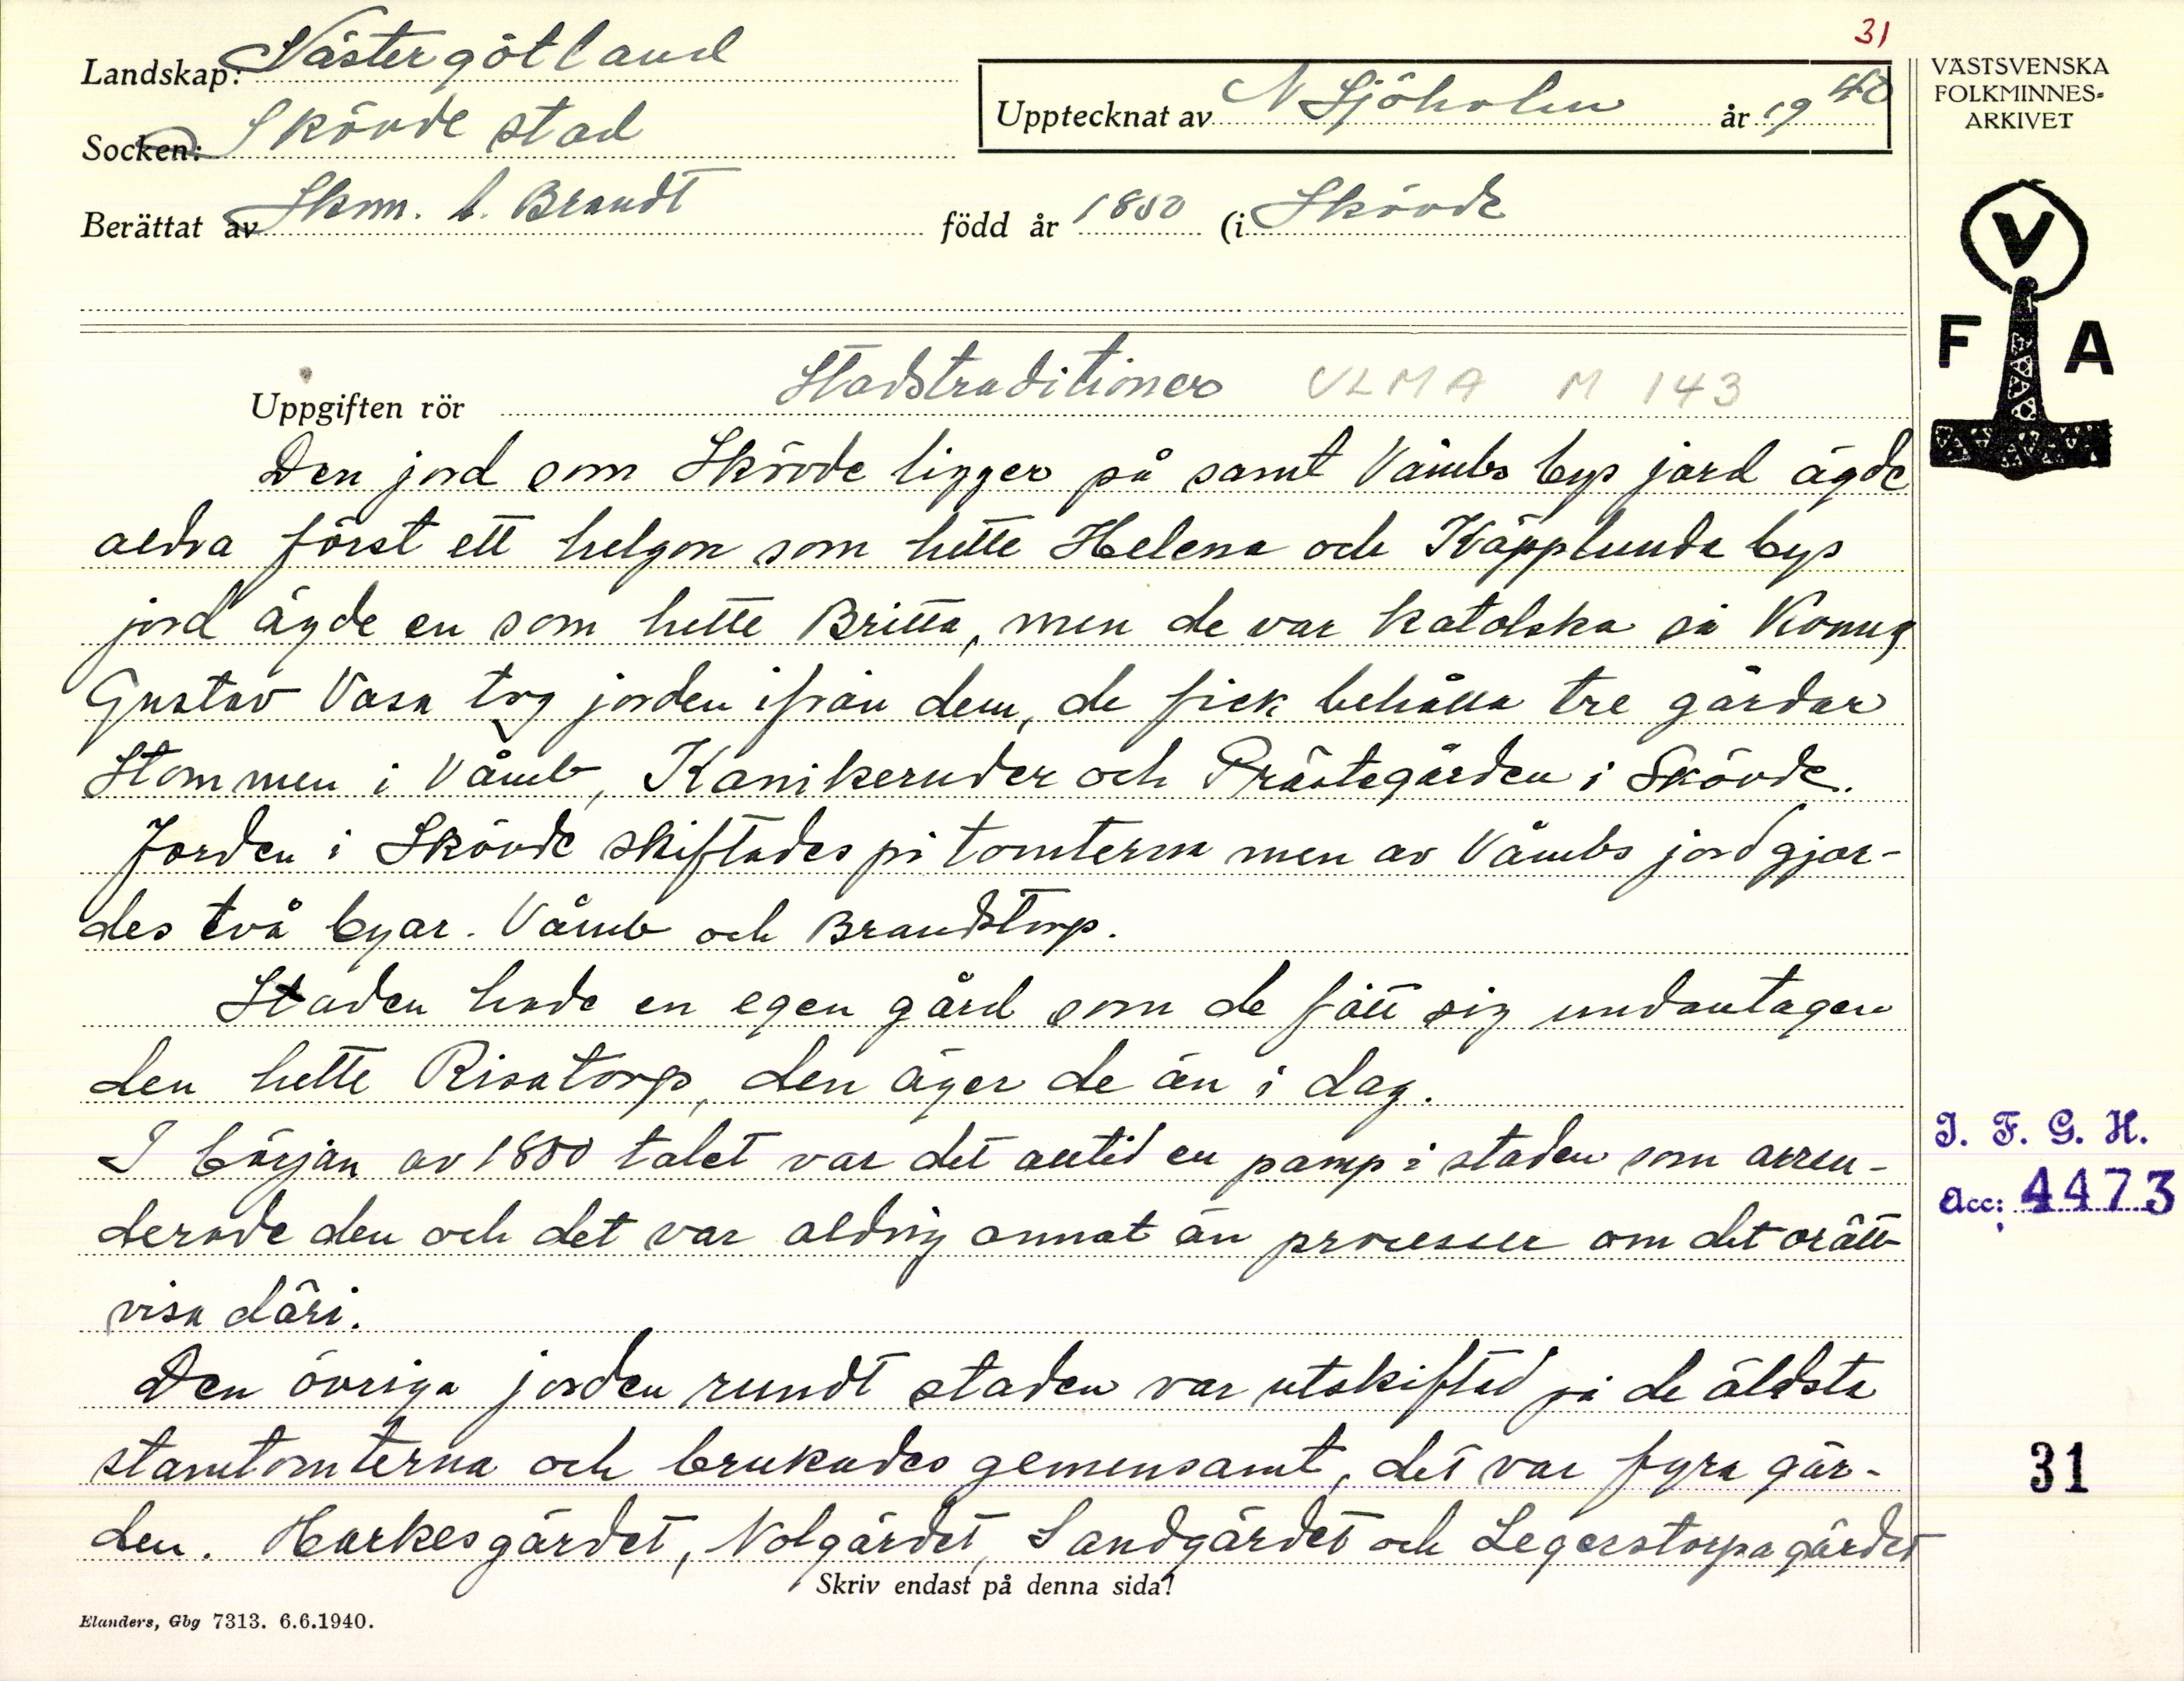 31
Landskap: Västergötland
Socken: Skövde stad
Upptecknat av N Sjöholm år 1940
VÄSTSVENSKA
FOLKMINNES-
ARKIVET
Berättat av Skm. C. Brandt född år 1850 (i Skövde
V
F A
Uppgiften rör Stadstraditioner VLMA M 143
Den jord som Skövde ligger på samt Våmbs bys jord ägde
aldra först ett helgon som hette Helena och Käpplunda bys
jord ägde en som hette Britta, men de var katolska så Konug
Gustav Vasa tog jorden ifrån dem, de fick behålla tre gårdar
Stommen i Våmb, Kanikeruder och Prästegården i Skövde.
Jorden i Skövde skiftades på tomterna men av Våmbs jord gjor-
des två byar. Våmb och Brandstorp.
Staden hade en egen gård som de fått sig undantagen
den hette Risatorp, den äger de än i dag.
I början av 1800 talet var det alltid en pamp i staden som arren-
derade den och det var aldrig annat än processer om det orätt-
visa däri.
Den övriga jorden rundt staden var utskiftad på de äldsta
stamtomterna och brukades gemensamt, det var fyra gär-
den. Harkesgärdet, Nolgärdet, Sandgärdet och Legerstorpagärdet
I. F. G. H.
Acc: 4473
31
Skriv endast på denna sida!
Elanders, Gbg 7313. 6.6.1940.